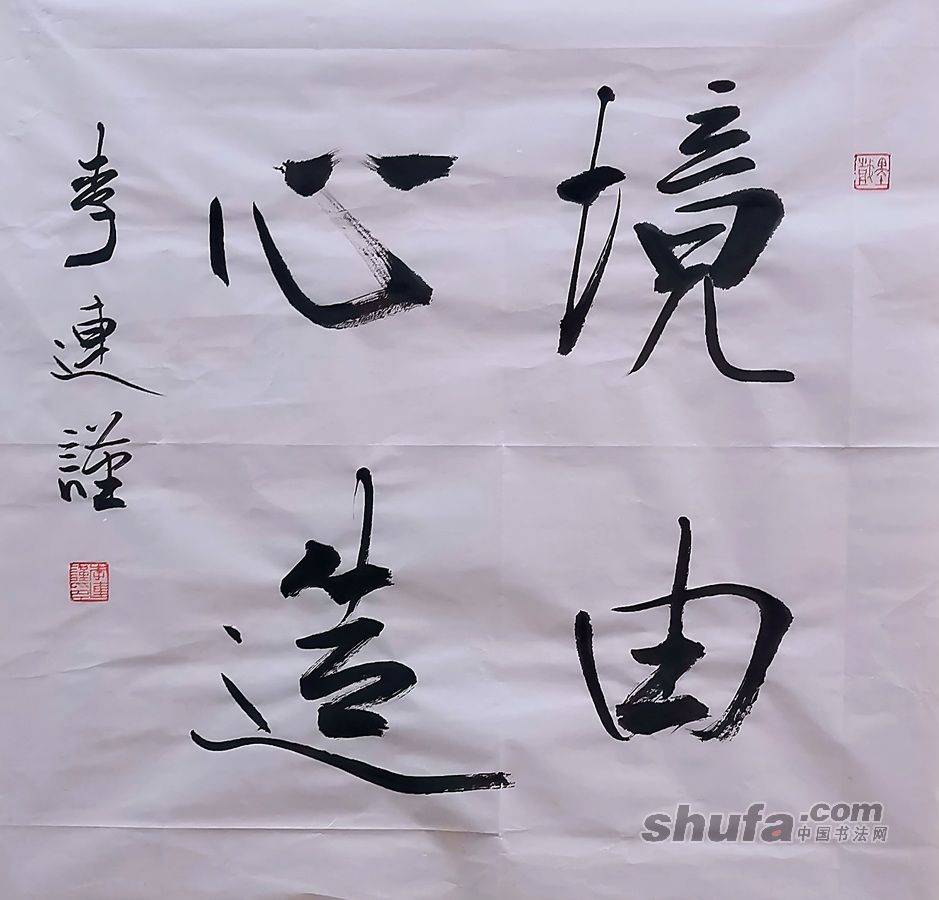 境由
心造
李連謹
shufa.com
中国书法网